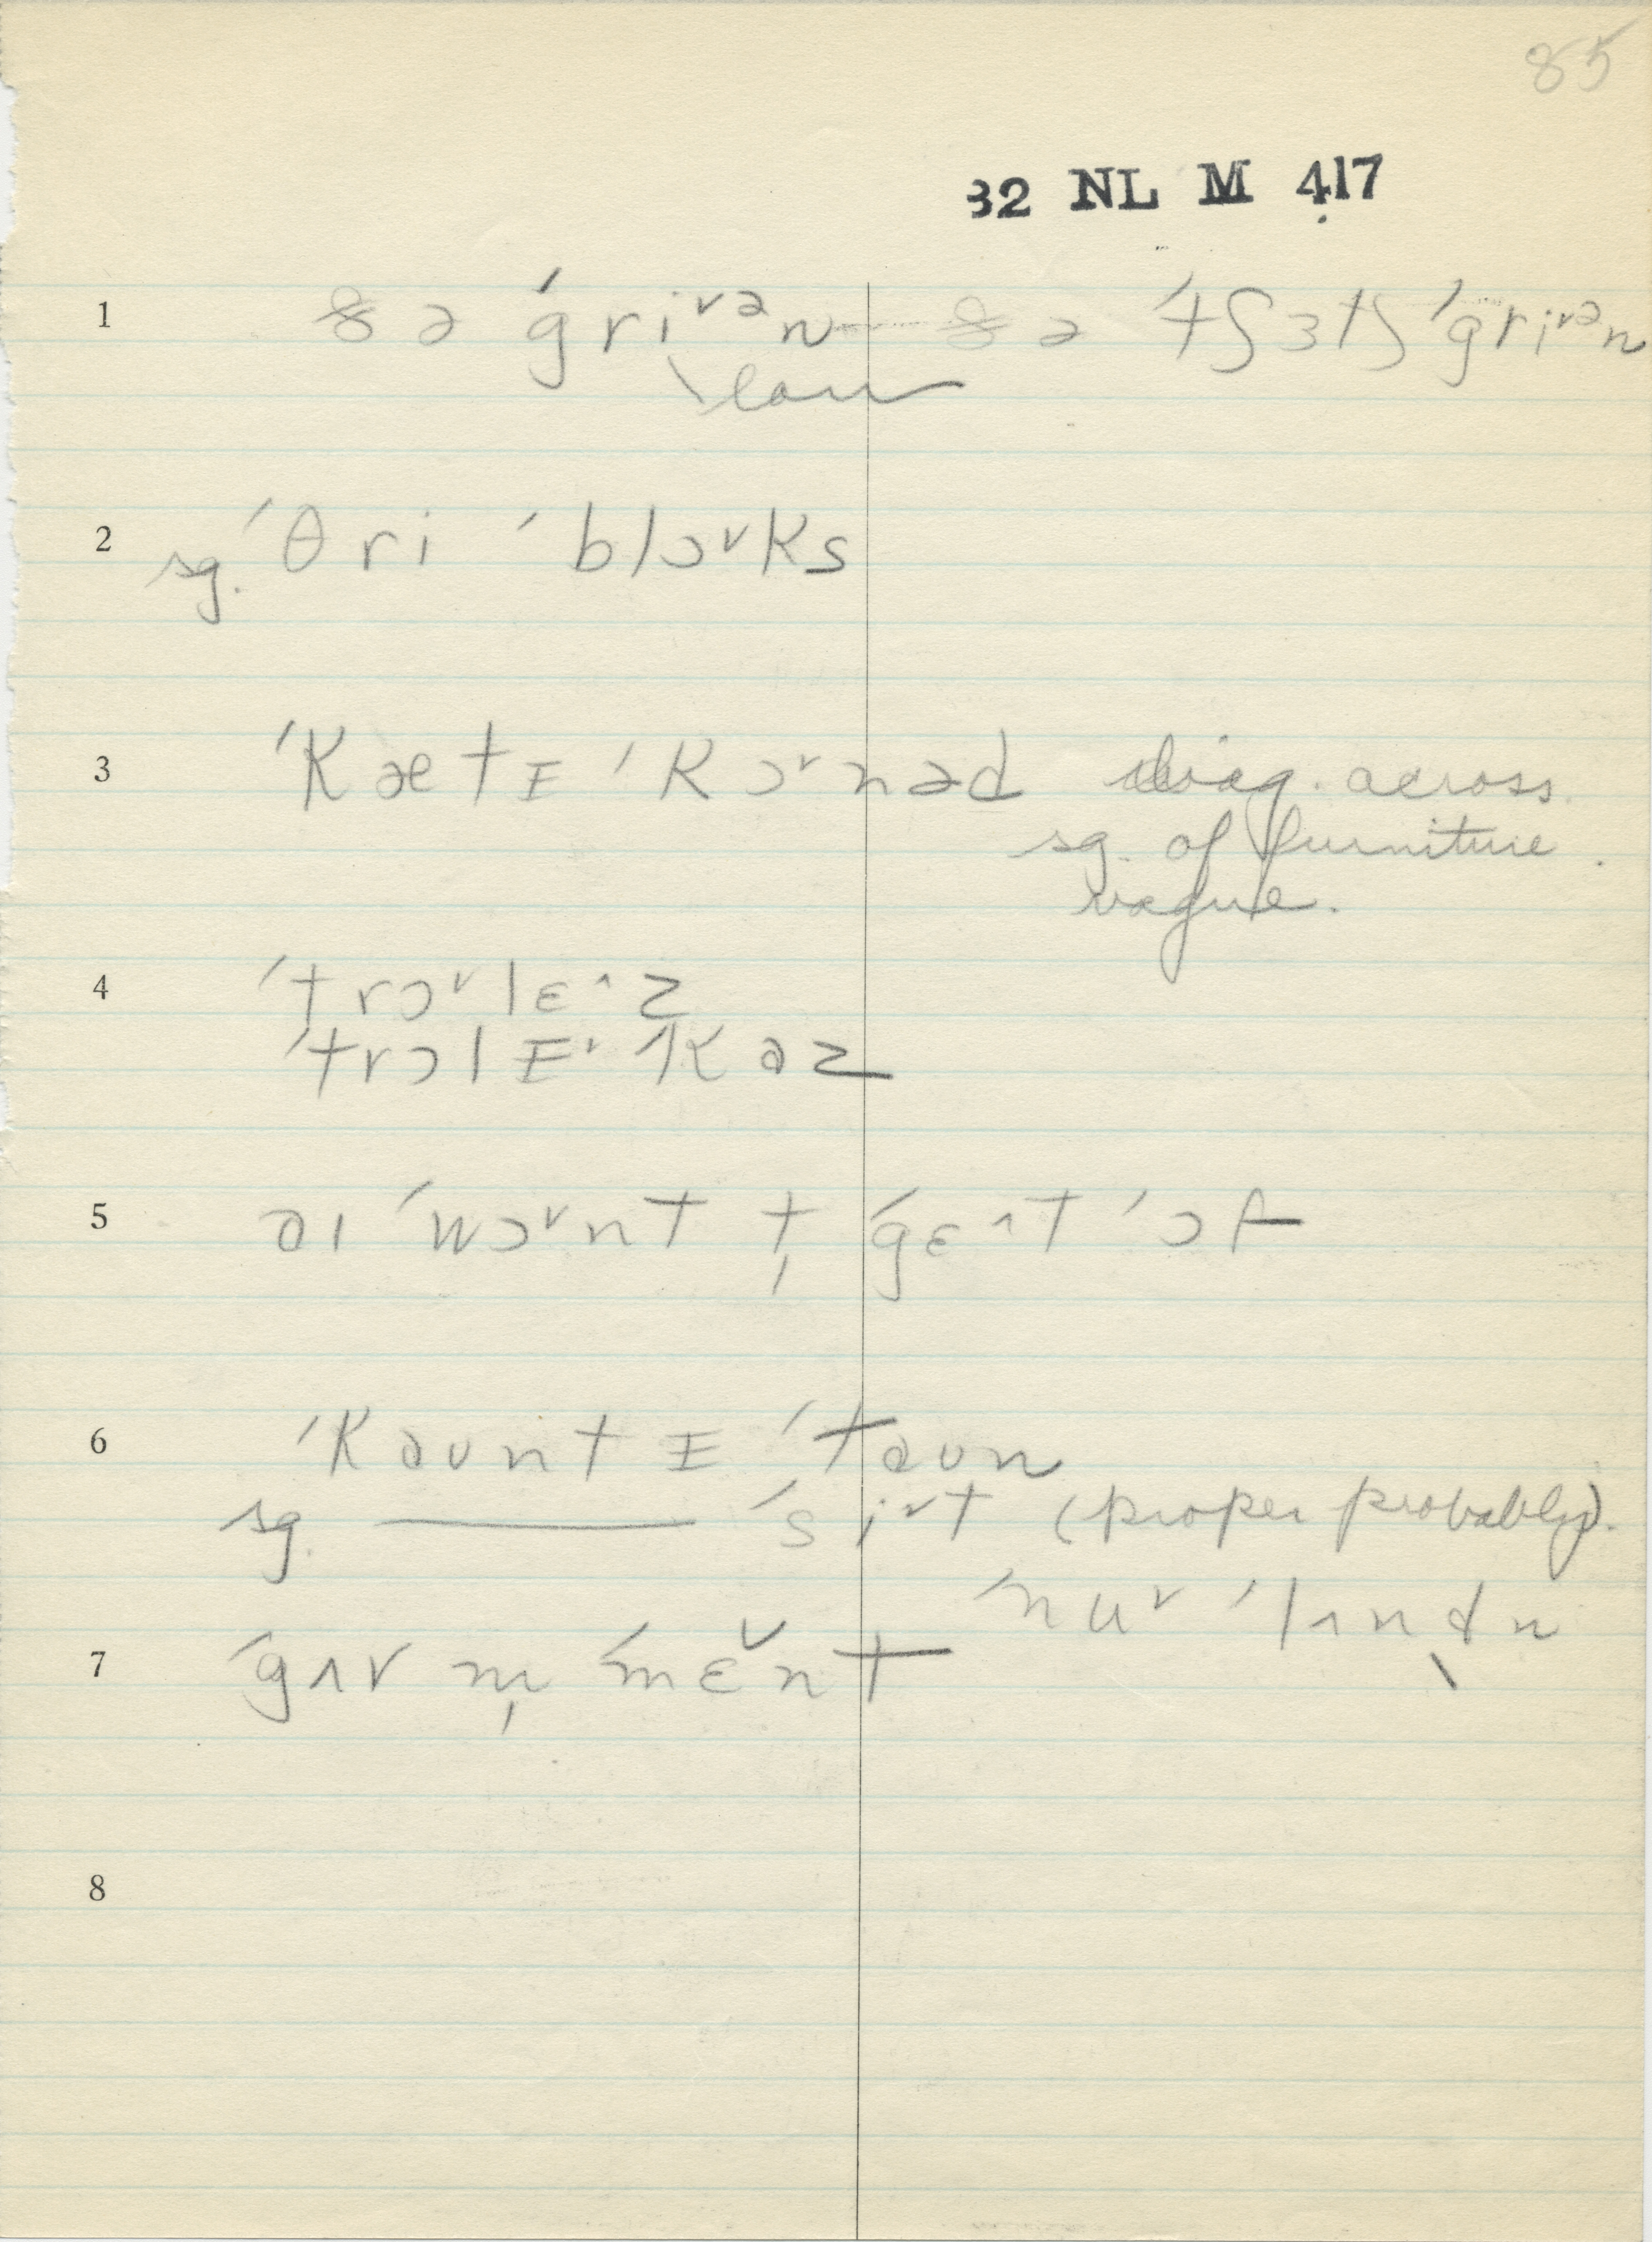 85
32 NL M 417
1 ðə ˈgri˅ən ðə ˈtʃɜtʃ ˈgri˅ən
lawn
2 sg. ˈθri ˈblɔ˅ks
3 ˈkætɪ ˈkɔ˅nəd diag. across
sg. of furniture.
vague.
4 ˈtrɔ˅lɛ˄z
ˈtrɔlɪ˅ ˈkaz
5 aɪ ˈwɔ˅nt t̩ ˈgɛ˄t ˈɔf
6 ˈkaʊntɪ ˈtaʊn
sg. ——— ˈsi˅t (proper probably).
ˈnu˅ ˈlʌndn̩
7 ˈgʌvm̩ ˈmɛ̆nt
8